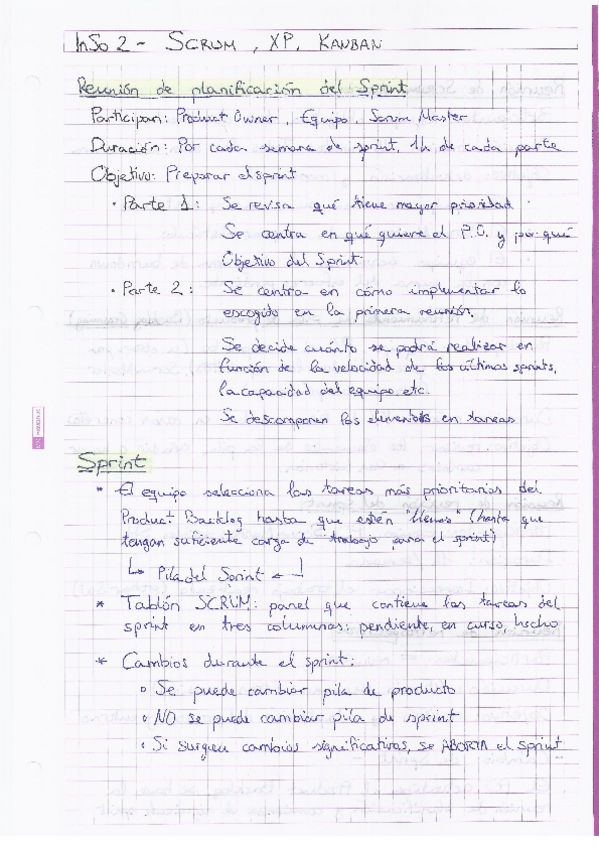 InSo 2 - SCRUM, XP, KANBAN
Reunión de planificación del Sprint
Participan: Product Owner, Equipo, Scrum Master
Duración: Por cada semana de sprint, 1h de cada parte
Objetivo: Preparar el sprint
· Parte 1: Se revisa qué tiene mayor prioridad
Se centra en qué quiere el P.O. y por qué
Objetivo del Sprint
· Parte 2: Se centra en cómo implementar lo
escogido en la primera reunión.
Se decide cuánto se podrá realizar en
función de la velocidad de los últimos sprints,
la capacidad del equipo etc.
Se descomponen los elementos en tareas
Sprint
* El equipo selecciona las tareas más prioritarias del
Product Backlog hasta que estén "llenos" (hasta que
tengan suficiente carga de trabajo para el sprint)
↳ Pila del Sprint ←
* Tablón SCRUM: panel que contiene las tareas del
sprint en tres columnas: pendiente, en curso, hecho
* Cambios durante el sprint:
∘ Se puede cambiar pila de producto
∘ NO se puede cambiar pila de sprint
∘ Si surgen cambios significativos, se ABORTA el sprint